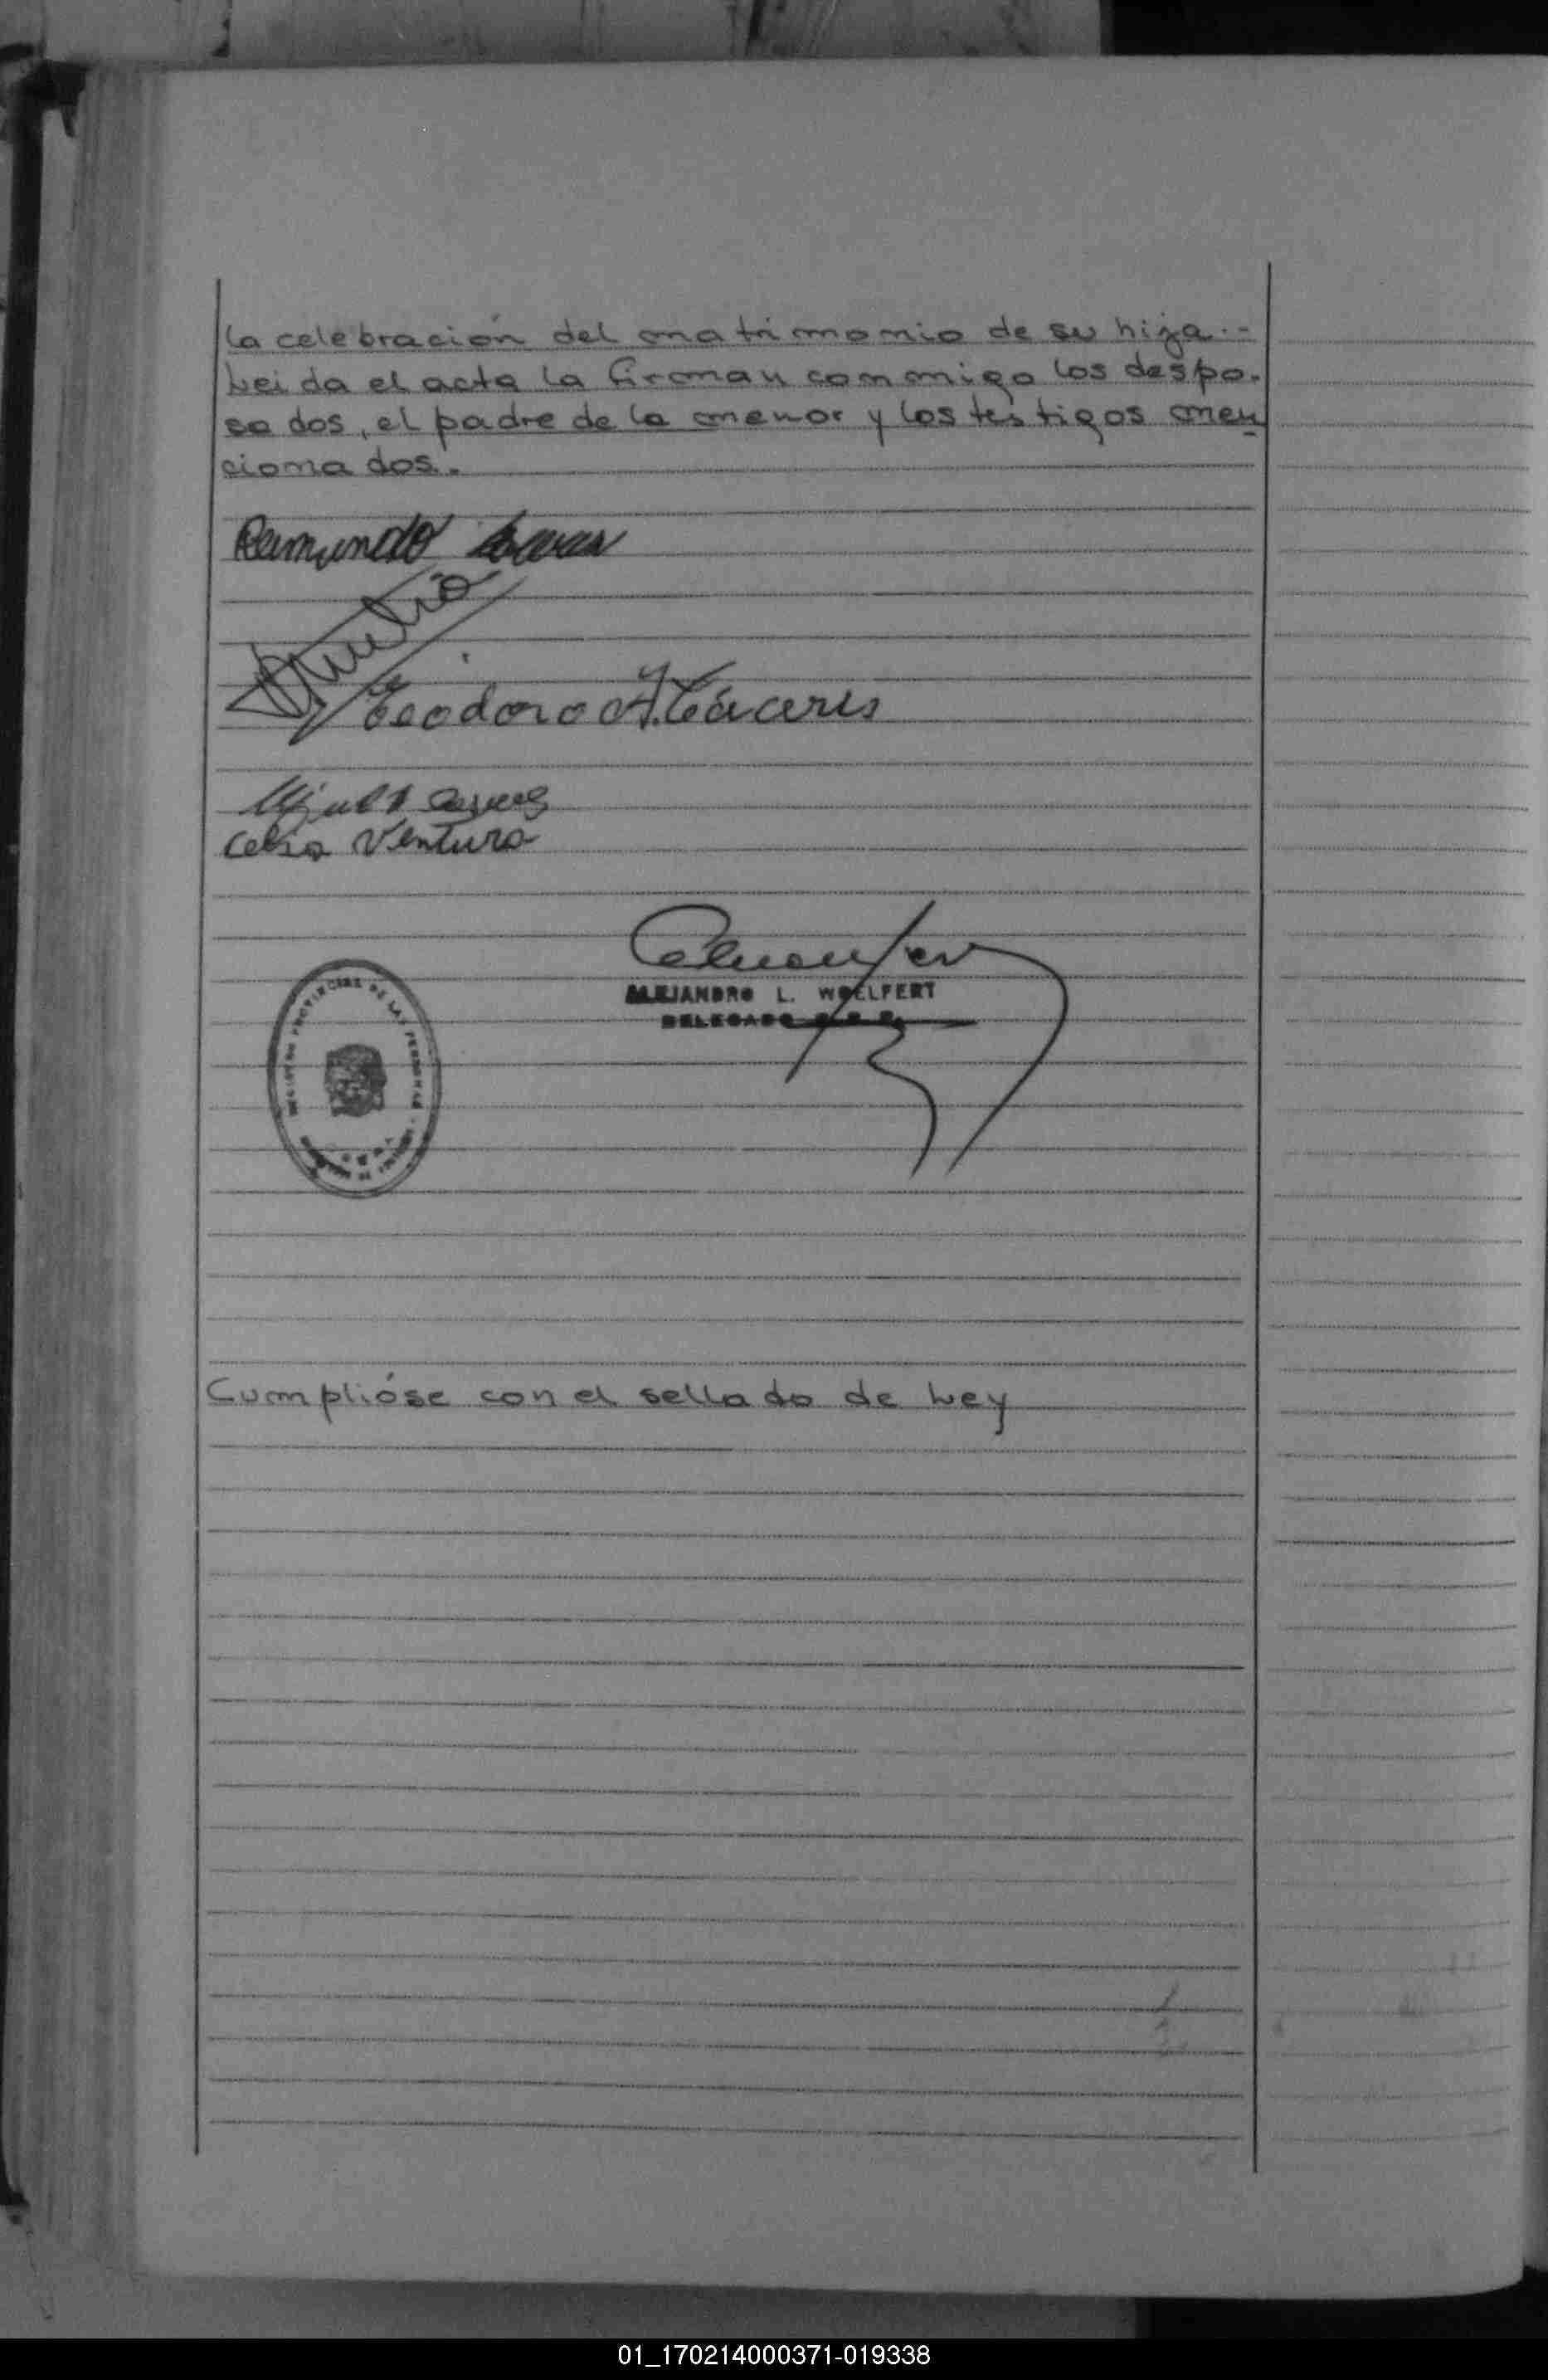 la celebración del matrimonio de su hija.-
Leida el acta la firman conmigo los despo-
sados, el padre de la menor y los testigos men
cionados.
Raimundo
Teodoro A. Cáceres
Celia Ventura
ALEJANDRO L. WOELFERT
DELEGADO
REGISTRO PROVINCIAL DE LAS PERSONAS
Cumplióse con el sellado de Ley
01_170214000371-019338